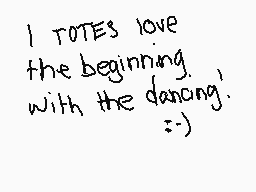 I TOTES love
the beginning
with the dancing!
:-)